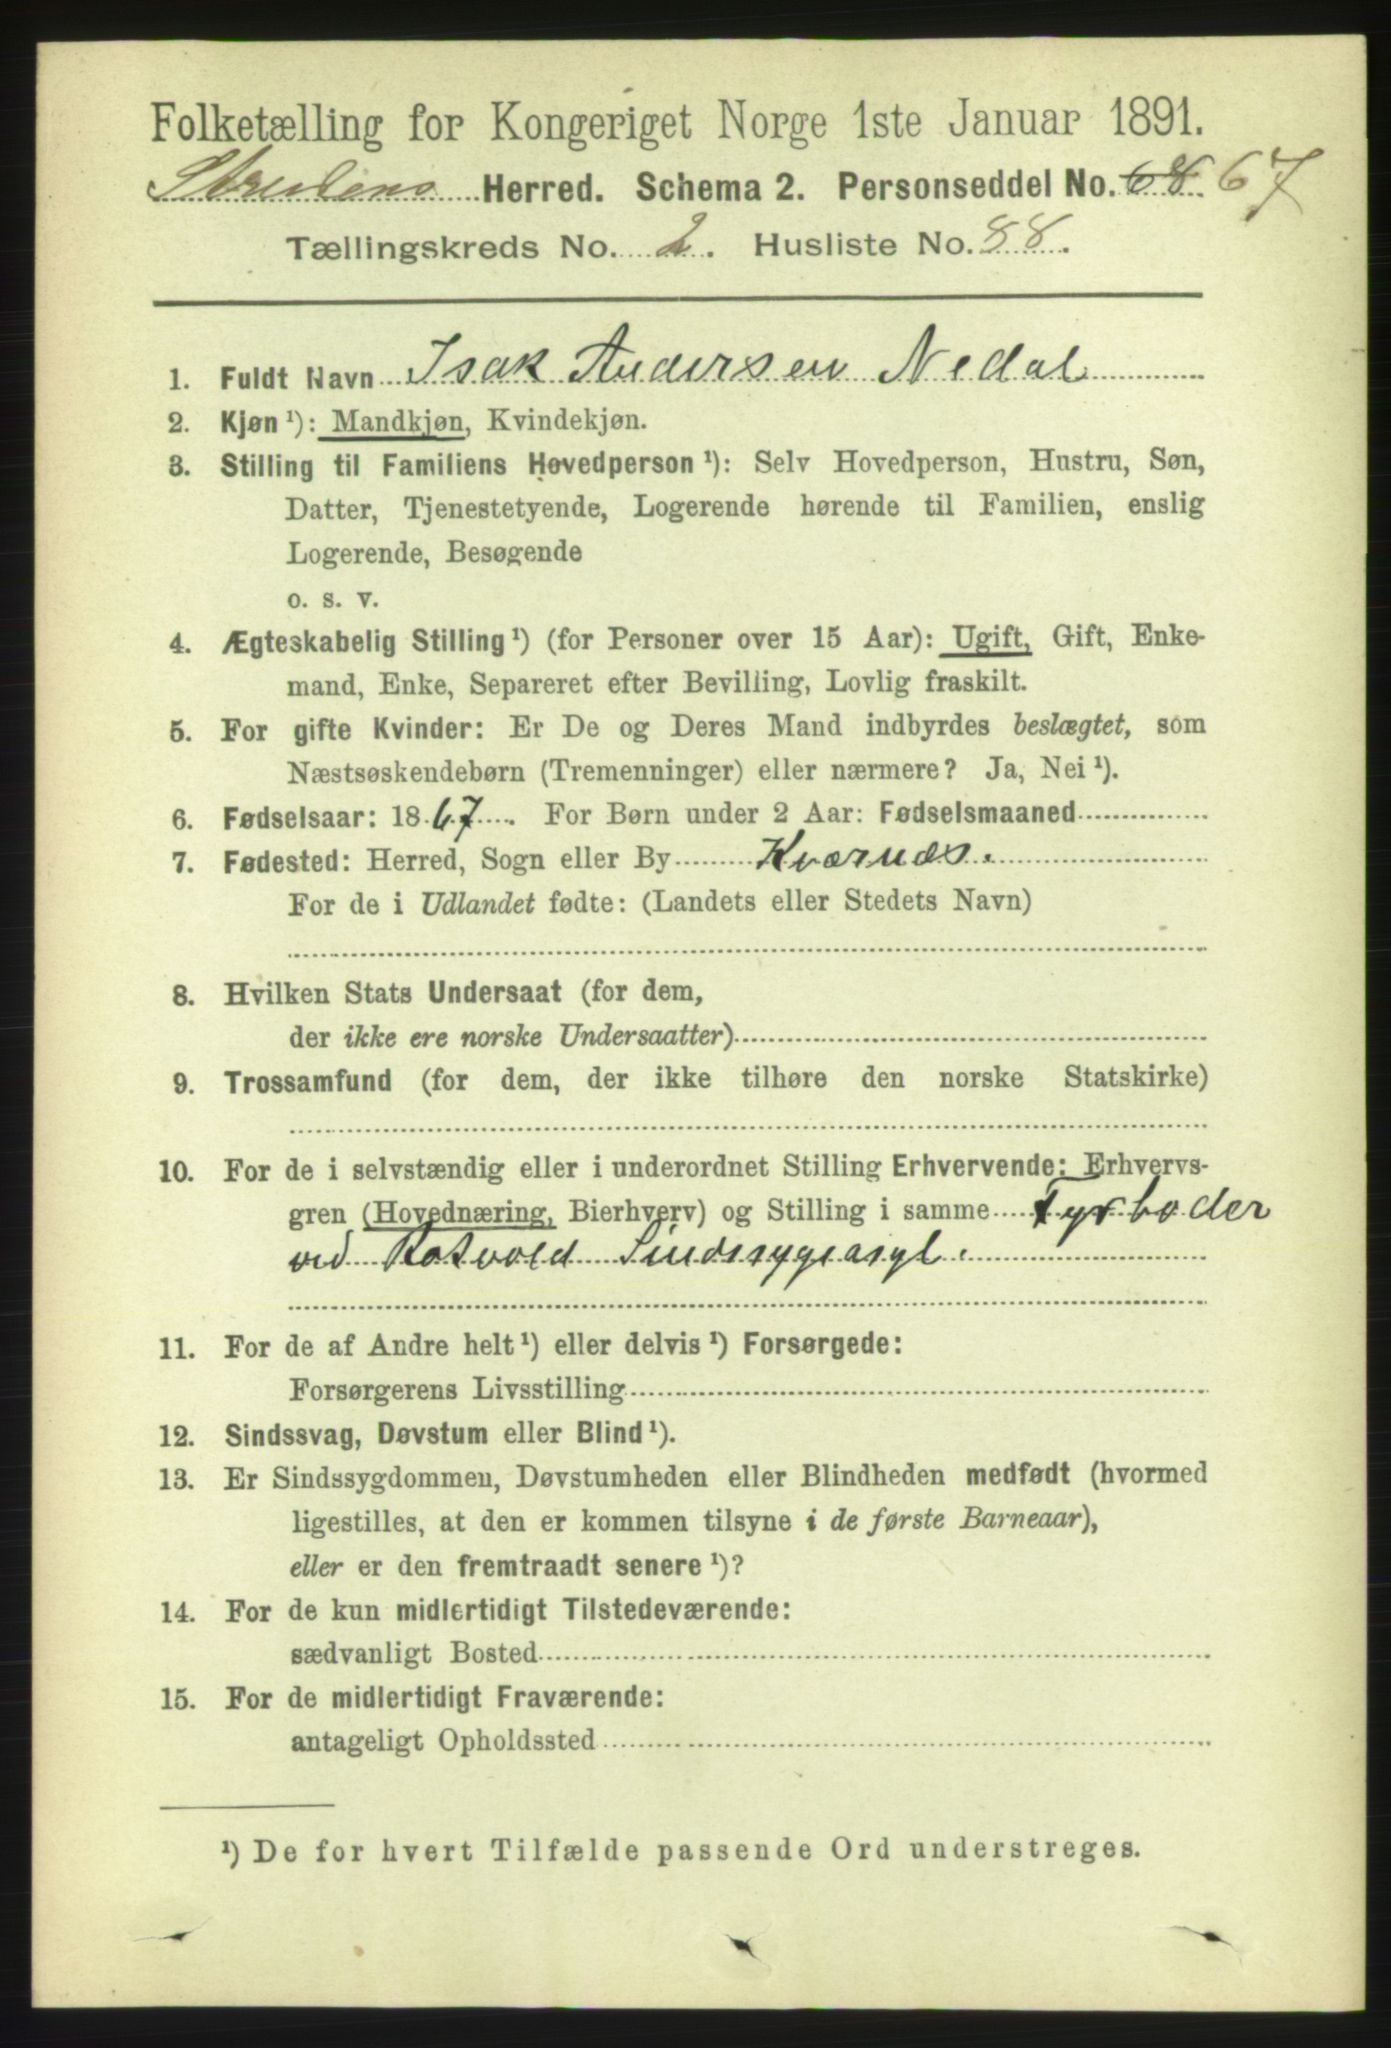 Folketælling for Kongeriget Norge 1ste Januar 1891.
Strindens Herred. Schema 2. Personseddel No. 68 67
Tællingskreds No. 2. Husliste No. 88.
1. Fuldt Navn Isak Andersen Nedal
2. Kjøn ¹): Mandkjøn, Kvindekjøn.
3. Stilling til Familiens Hovedperson ¹): Selv Hovedperson, Hustru, Søn,
Datter, Tjenestetyende, Logerende hørende til Familien, enslig
Logerende, Besøgende
o. s. v.
4. Ægteskabelig Stilling ¹) (for Personer over 15 Aar): Ugift, Gift, Enke-
mand, Enke, Separeret efter Bevilling, Lovlig fraskilt.
5. For gifte Kvinder: Er De og Deres Mand indbyrdes beslægtet, som
Næstsøskendebørn (Tremenninger) eller nærmere? Ja, Nei ¹).
6. Fødselsaar: 1867. For Børn under 2 Aar: Fødselsmaaned
7. Fødested: Herred, Sogn eller By Kværnæs.
For de i Udlandet fødte: (Landets eller Stedets Navn)
8. Hvilken Stats Undersaat (for dem,
der ikke ere norske Undersaatter)
9. Trossamfund (for dem, der ikke tilhøre den norske Statskirke)
10. For de i selvstændig eller i underordnet Stilling Erhvervende: Erhvervs-
gren (Hovednæring, Bierhverv) og Stilling i samme Fyrbøder
ved Rotvold Sindssygeasyl.
11. For de af Andre helt ¹) eller delvis ¹) Forsørgede:
Forsørgerens Livsstilling
12. Sindssvag, Døvstum eller Blind ¹).
13. Er Sindssygdommen, Døvstumheden eller Blindheden medfødt (hvormed
ligestilles, at den er kommen tilsyne i de første Barneaar),
eller er den fremtraadt senere ¹)?
14. For de kun midlertidigt Tilstedeværende:
sædvanligt Bosted
15. For de midlertidigt Fraværende:
antageligt Opholdssted
¹) De for hvert Tilfælde passende Ord understreges.